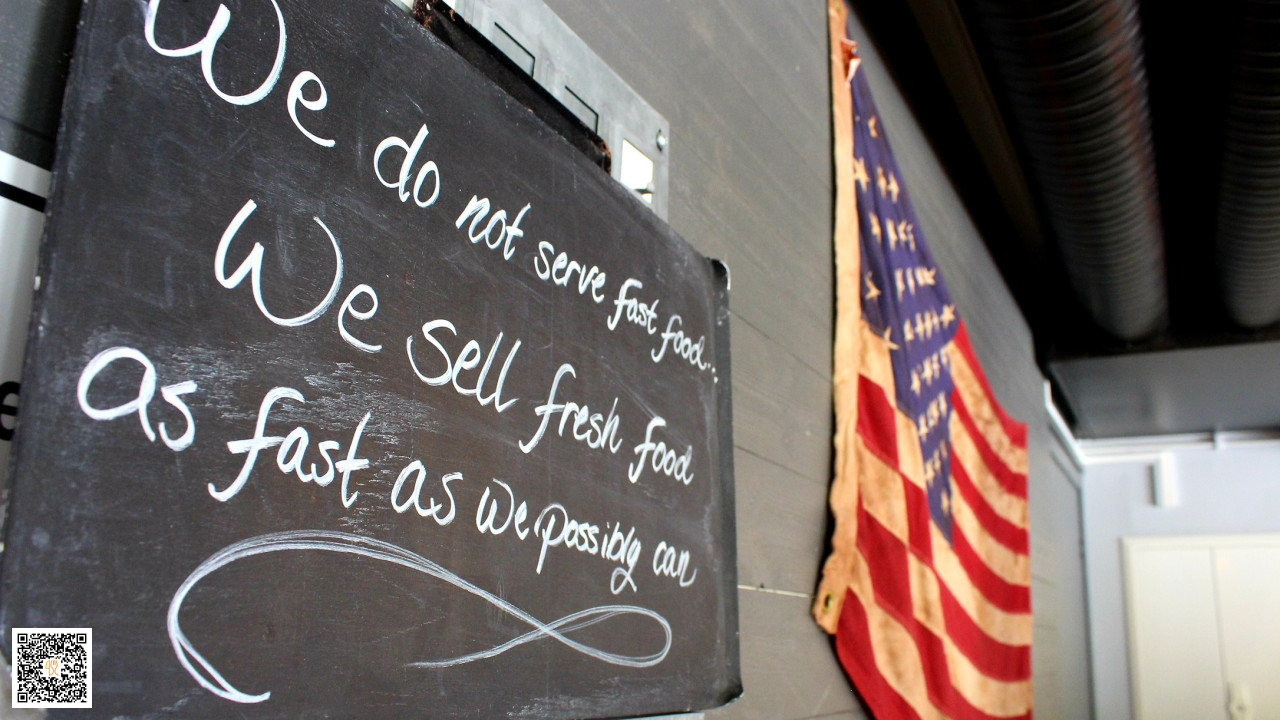 We do not serve fast food...
We sell fresh food
as fast as we possibly can